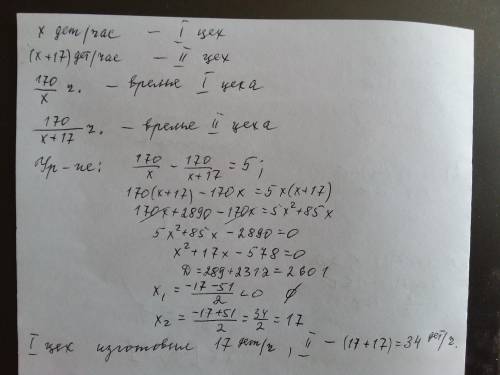 x дет/час – I цех
(x+17) дет/час – II цех
170/x ч. – время I цеха
170/(x+17) ч. – время II цеха
Ур-ие: 170/x - 170/(x+17) = 5;
170(x+17) - 170x = 5x(x+17)
170x + 2890 - 170x = 5x² + 85x
5x² + 85x - 2890 = 0
x² + 17x - 578 = 0
D = 289 + 2312 = 2601
x₁ = (-17-51)/2 < 0 ∅
x₂ = (-17+51)/2 = 34/2 = 17
I цех изготовил 17 дет/ч, II – (17+17) = 34 дет/ч.